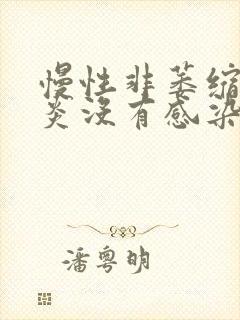 慢性非萎缩
炎没有感染
潘粤明